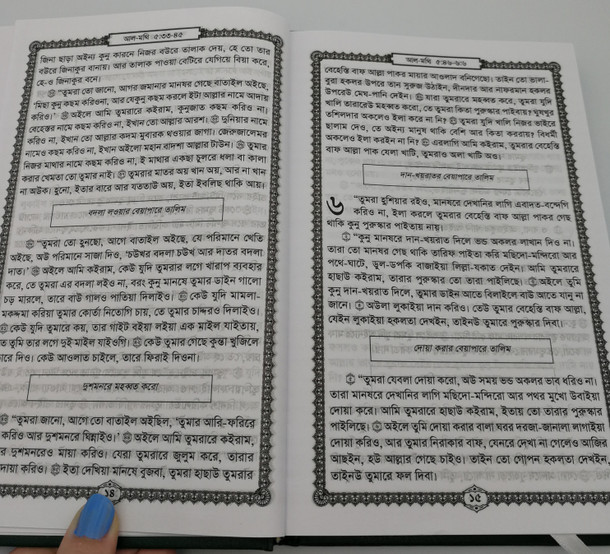 আল-মথি ৫:৩৩-৪৫
জিনা ছাড়া অইন্য কুনু কারনে নিজর বউরে তালাক দেয়, হে তো তার
বউরে জিনাকুর বানায়। আর তালাক পাওয়া বেটিরে যেগিয়ে বিয়া করে,
হে-ও জিনাকুর বনে।
"তুমরা তো জানো, আগর জমানার মানষর গেছে বাতাইল অইছে,
'মিছা কুনু কছম করিওনা, আর যেকুনু কছম করলে ইটা আল্লার নামে আদায়
করিও।' অইলে আমি তুমরারে কইরাম, কুনুজাত কছম করিও না।
বেহেস্তর নামে কছম করিও না, ইখান তো আল্লার আরশ। দুনিয়ার নামে
করিও না, ইখান তো আল্লার কদম মুবারক থওয়ার জাগা। জেরুজালেমর
নামেও কছম করিও না, ইখান অইলো মহান বাদশা আল্লার টাউন। তুমার
নিজর মাথার নামে কছম করিও না, ই মাথার একছা চুলরে ধলা বা কালা
করার খেমতা তো তুমার নাই। তুমরার মাতর অয় খান অয়, আর না খান
না অউক। হুনো, ইতার বারে আর যততাউ অয়, ইতা ইবলিছ থাকি আয়।
বদলা লওয়ার বেয়াপারে তালিম
"তুমরা তো হুনছো, আগে বাতাইল অইছে, যে পরিমানে খেতি
অইছে, অউ পরিমানে সাজা দিও, 'চউখর বদলা চউখ আর দাতর বদলা
দাত।' অইলে আমি কইরাম, কেউ যুদি তুমরার লগে খারাপ ব্যবহার
করে, তে তুমরা এর বদলা লইও না, বরং কুনু মানষে তুমার ডাইন গালো
চড় মারলে, তারে বাউ গালও পাতিয়া দিলাইও। কেউ যুদি মামলা-
মকদ্দমা করিয়া তুমার কোর্তা নিতোগি চায়, তে তুমার চাদ্দরও দিলাইও।
কেউ যুদি তুমারে কয়, তার গাইট বইয়া লইয়া এক মাইল যাইতায়,
ত তুমি তার লগে দুই মাইল যাইওগি। কেউ তুমার গেছে কুন্তা খুজিলে
রে দিও। কেউ আওলাত চাইলে, তারে ফিরাই দিওনা।
দুশমনরে মহব্বত করো
"তুমরা জানো, আগে তো বাতাইল অইছিল, 'তুমার আরি-ফরিরে
করিও আর দুশমনরে ঘিন্নাইও।' অইলে আমি তুমরারে কইরাম,
র দুশমনরেও মায়া করিও। যেরা তুমরারে জুলুম করে, তারার
দায়া করিও। ইতা দেখিয়া মানষে বুজবা, তুমরা হাছাউ তুমরার
১৪
আল-মথি ৫:৪৬-৬:৬
বেহেস্তি বাফ আল্লা পাকর মায়ার আওলাদ বনিগেছো। তাইন তো ভালা-
বুরা হকলর উপরে তান সুরুজ উঠাইন, দীনদার আর নাফরমান হকলর
উপরেউ মেঘ-পানি দেইন। যারা তুমরারে মহব্বত করে, তুমরা যুদি
খালি তারারেউ মহব্বত করো, তে তুমরা কিতা পুরুস্কার পাইবায়? ঘুষখুর
তশিলদার অকলেও ইলা করে না নি? তুমরা যুদি খালি নিজর ভাইরে
ছালাম দেও, তে অইন্য মানুষ থাকি বেশি আর কিতা কররায়? বিধর্মী
অকলেও ইলা করইন না নি? এরলাগি আমি কইরাম, তুমরার বেহেস্তি
বাফ আল্লা পাক যেলা খাটি, তুমরাও অলা খাটি অও।
দান-খয়রাতর বেয়াপারে তালিম
৬ "তুমরা হুশিয়ার রইও, মানষরে দেখানির লাগি এবাদত-বন্দেগি
করিও না, ইলা করলে তুমরার বেহেস্তি বাফ আল্লা পাকর গেছ
থাকি কুনু পুরুস্কার পাইতায় নায়।
"কুনু মানষরে দান-খয়রাত দিলে ভন্ড অকলর লাখান দিও না।
তারা তো মানষর গেছ থাকি তারিফ পাইতা করি মছিদো-মন্দিরো আর
পথে-ঘাটে, ঢুল-ডপকি বাজাইয়া লিল্লা-যকাত দেইন। আমি তুমরারে
হাছাউ কইরাম, তারার পুরুস্কার তো তারা পাইলিছে। অইলে তুমি
কুনু দান-খয়রাত দিলে, তুমার ডাইন আতে বিলাইলে বাউ আতে যানু না
জানে। অউলা লুকাইয়া দান করিও। তেউ তুমার বেহেস্তি বাফ আল্লা,
যেইন লুকাইয়া হকলতা দেখইন, তাইনউ তুমারে পুরুস্কার দিবা।
দোয়া করার বেয়াপারে তালিম
"তুমরা যেবলা দোয়া করো, অউ সময় ভন্ড অকলর ভাব ধরিও না।
তারা মানষরে দেখানির লাগি মছিদো-মন্দিরো আর পথর মুখো উবাইয়া
দোয়া করে। আমি তুমরারে হাছাউ কইরাম, ইতায় তো তারার পুরুস্কার
পাইলিছে। অইলে তুমি দোয়া করার বালা ঘরর দরজা-জানালা লাগাইয়া
দোয়া করিও, আর তুমার নিরাকার বাফ, যেনরে দেখা না গেলেও আজির
আছইন, হউ আল্লার গেছে চাইও। তাইন তো গোপন হকলতা দেখইন,
তাইনউ তুমারে ফল দিবা।
১৫